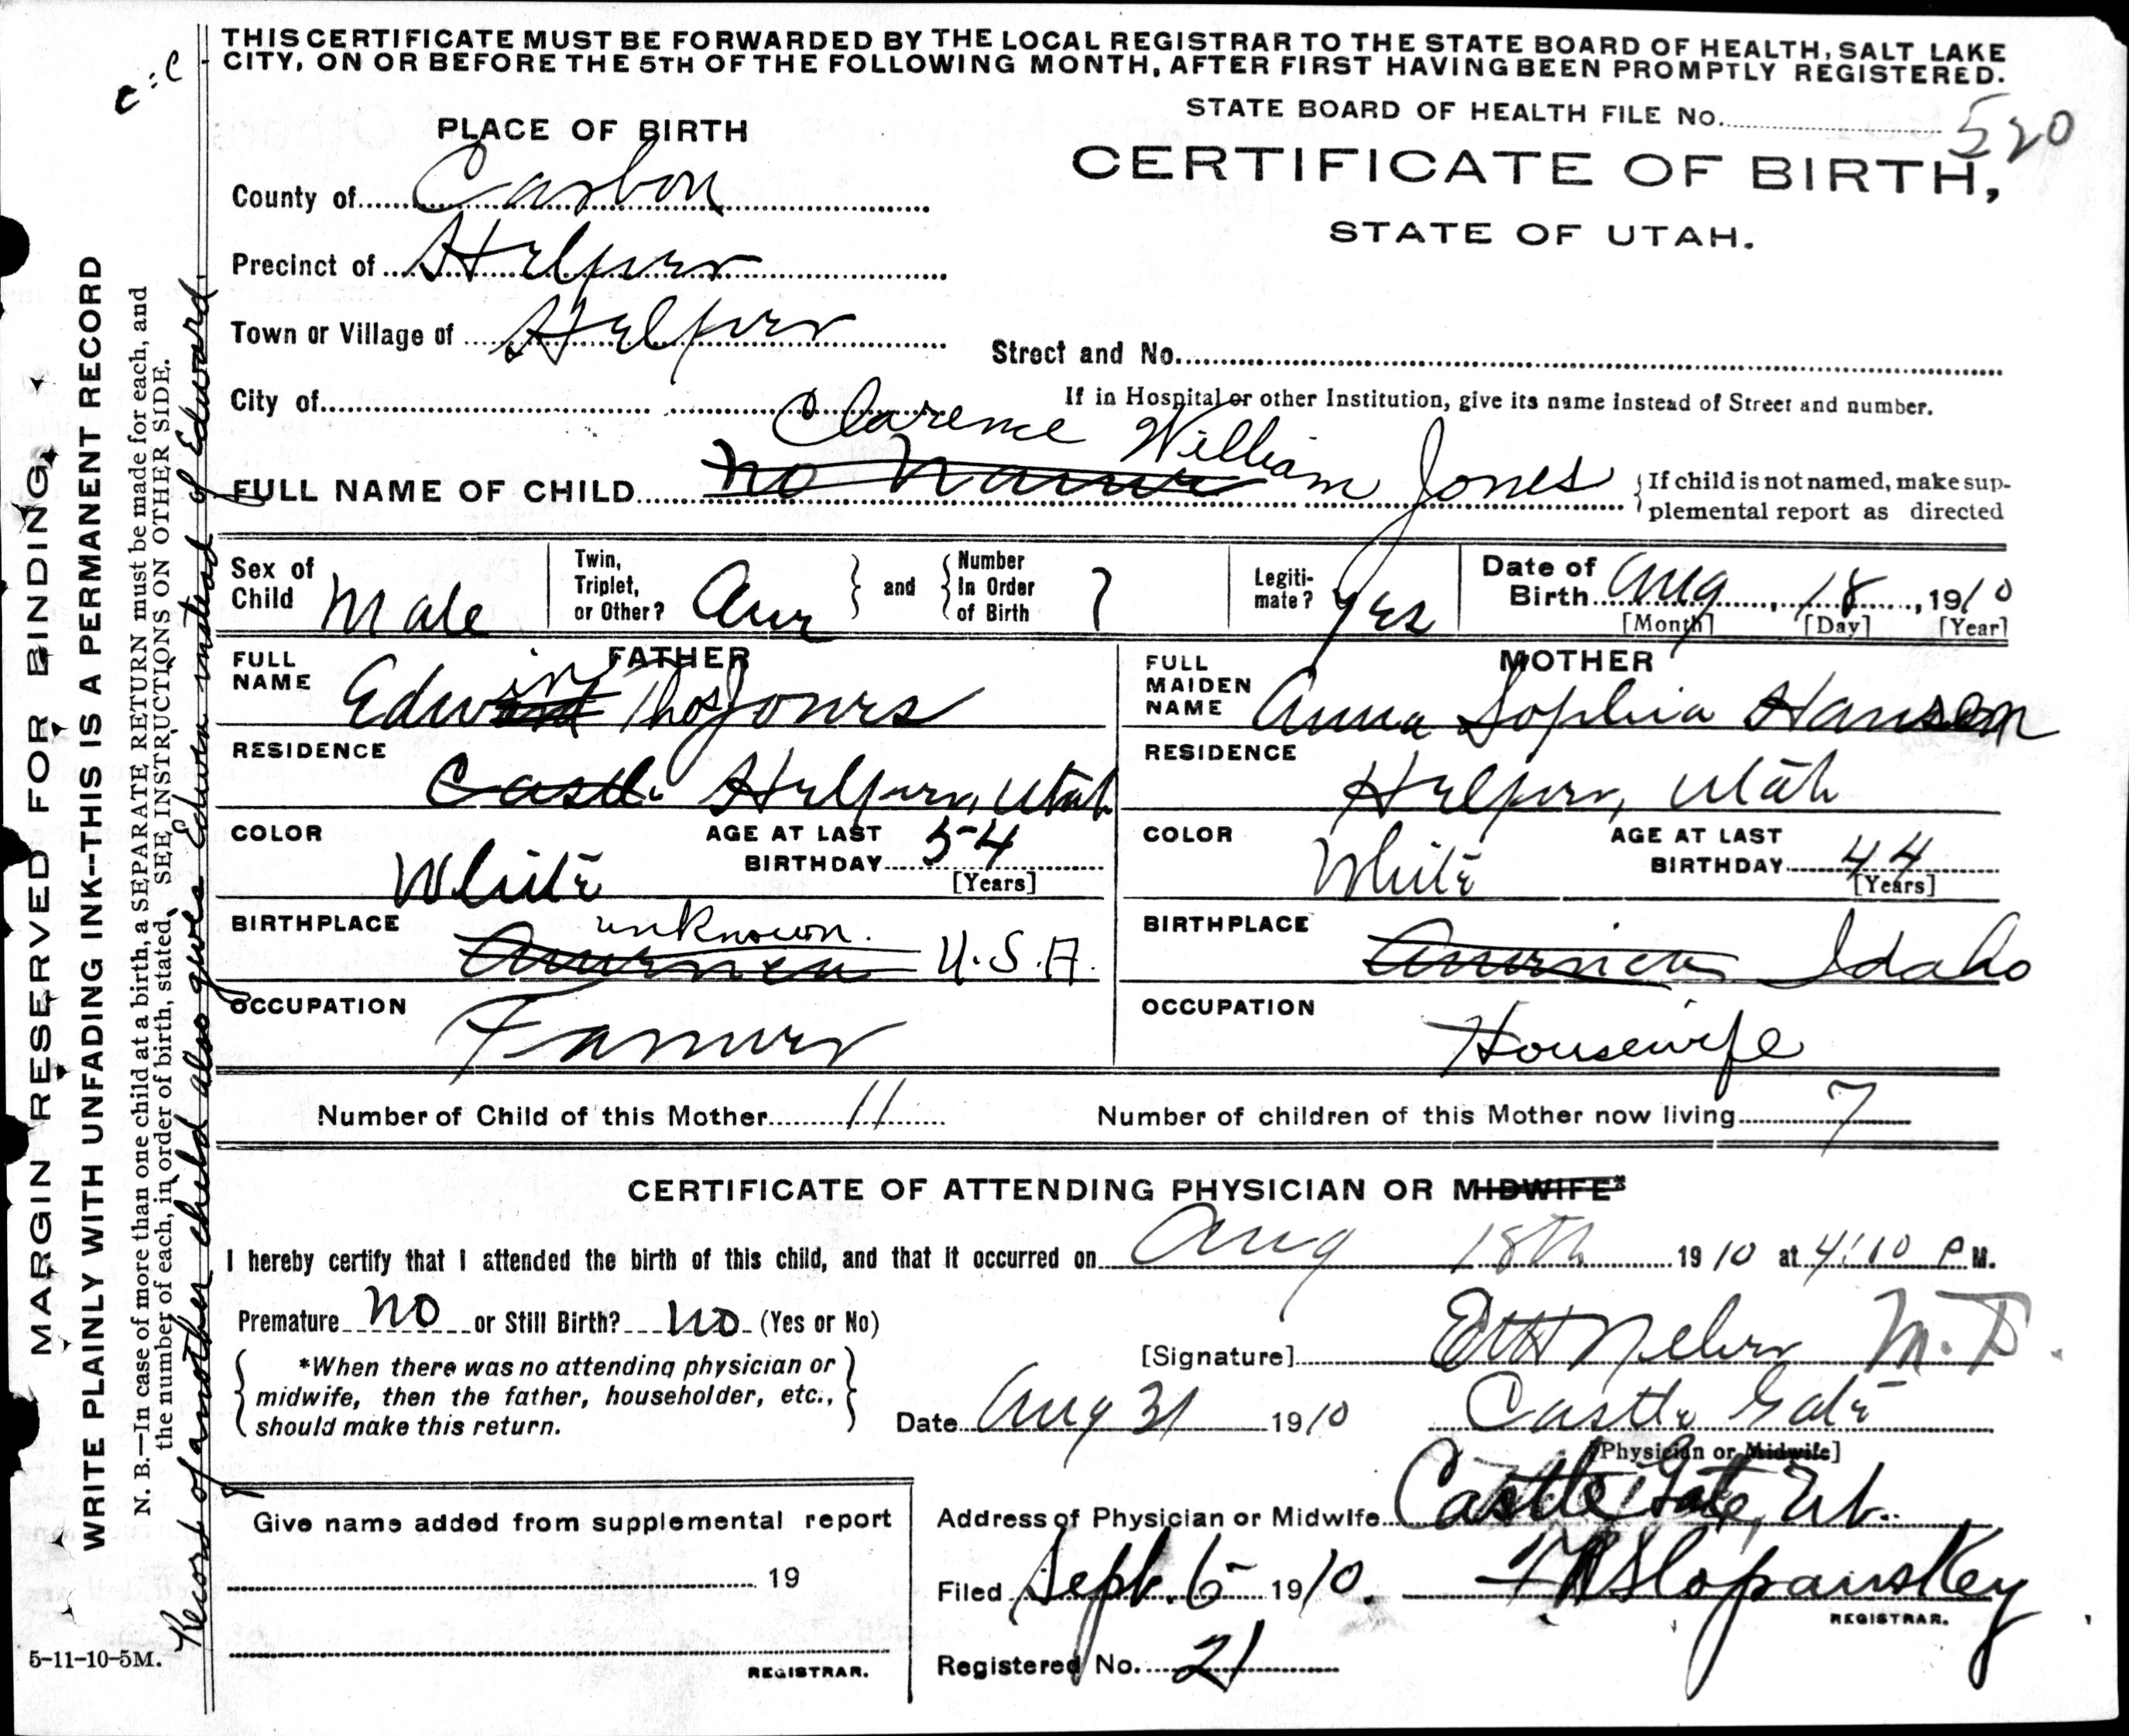 THIS CERTIFICATE MUST BE FORWARDED BY THE LOCAL REGISTRAR TO THE STATE BOARD OF HEALTH, SALT LAKE
CITY, ON OR BEFORE THE 5TH OF THE FOLLOWING MONTH, AFTER FIRST HAVING BEEN PROMPTLY REGISTERED.
c:c
STATE BOARD OF HEALTH FILE No. 520
PLACE OF BIRTH
CERTIFICATE OF BIRTH,
STATE OF UTAH.
County of Carbon
Precinct of Helper
Town or Village of Helper
Street and No.
City of
If in Hospital or other Institution, give its name instead of Street and number.
Clarence William Jones
FULL NAME OF CHILD no name
If child is not named, make sup-
plemental report as directed
Sex of Child Male
Twin, Triplet, or Other?
and
Number In Order of Birth
Legiti-mate? Yes
Date of Birth Aug 18, 1910
[Month] [Day] [Year]
FATHER
FULL NAME Edwin Thos Jones
RESIDENCE Castle Helper, Utah
COLOR White
AGE AT LAST BIRTHDAY 54
[Years]
BIRTHPLACE America unknown. U.S.A.
OCCUPATION Farmer
MOTHER
FULL MAIDEN NAME Anna Sophia Hansen
RESIDENCE Helper, Utah
COLOR White
AGE AT LAST BIRTHDAY 44
[Years]
BIRTHPLACE America Idaho
OCCUPATION Housewife
Number of Child of this Mother 11
Number of children of this Mother now living 7
CERTIFICATE OF ATTENDING PHYSICIAN OR MIDWIFE*
I hereby certify that I attended the birth of this child, and that it occurred on Aug 18th 1910 at 4:10 P M.
Premature no or Still Birth? no (Yes or No)
*When there was no attending physician or
midwife, then the father, householder, etc.,
should make this return.
[Signature] M.D.
Date Aug 31 1910
Castle Gate
[Physician or Midwife]
Give name added from supplemental report
19
REGISTRAR.
Address of Physician or Midwife Castle Gate, Ut.
Filed Sept. 6 1910.
REGISTRAR.
Registered No. 21
MARGIN RESERVED FOR BINDING
WRITE PLAINLY WITH UNFADING INK--THIS IS A PERMANENT RECORD
N. B.—In case of more than one child at a birth, a SEPARATE RETURN must be made for each, and
the number of each, in order of birth, stated. SEE INSTRUCTIONS ON OTHER SIDE.
Record of another child also gives Edwin instead of Edward.
5-11-10-5M.